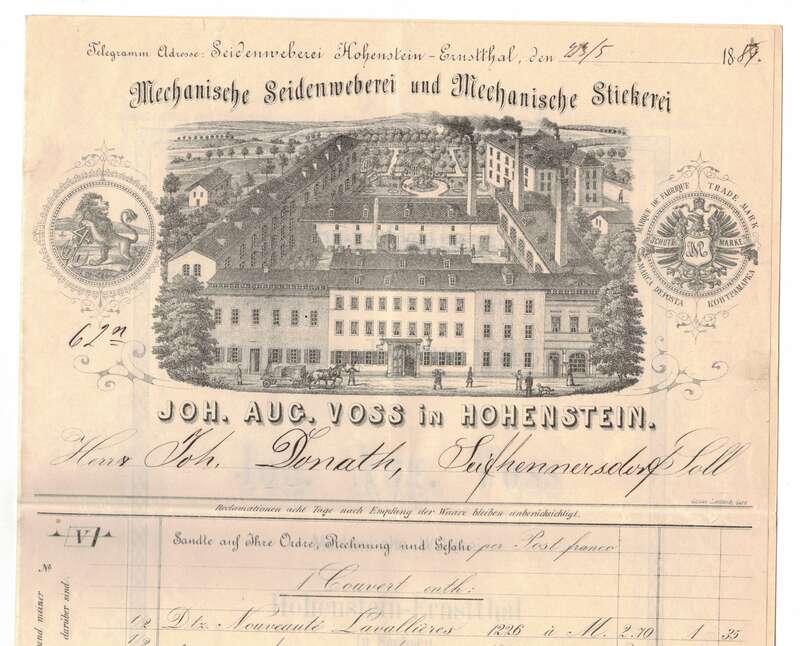 Telegramm Adresse: Seidenweberei Hohenstein-Ernstthal, den 23/5 188
Mechanische Seidenweberei und Mechanische Stickerei
MARQUE DE FABRIQUE TRADE MARK
SCHUTZ MARKE
M
MARCA DEPOSTA
62
JOH. AUG. VOSS in HOHENSTEIN.
Herrn Joh. Donath, Seifhennersdorf Soll
Reclamationen acht Tage nach Empfang der Waare bleiben unberücksichtigt.
V
Sandte auf Ihre Ordre, Rechnung und Gefahr per Post franco
No
1 Couvert enth:
1/2 Dtz. Nouveauté Lavallières 1226 à M. 2.70 1 35
1/2
und meiner
darüber sind